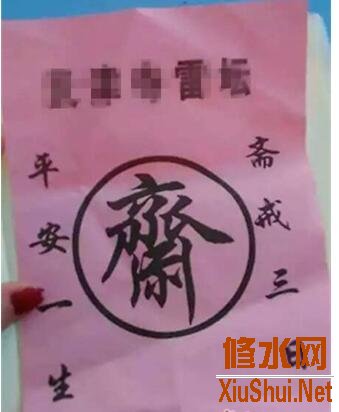 雷坛
斋戒三日
齋
平安一生
修水网
XiuShui.Net